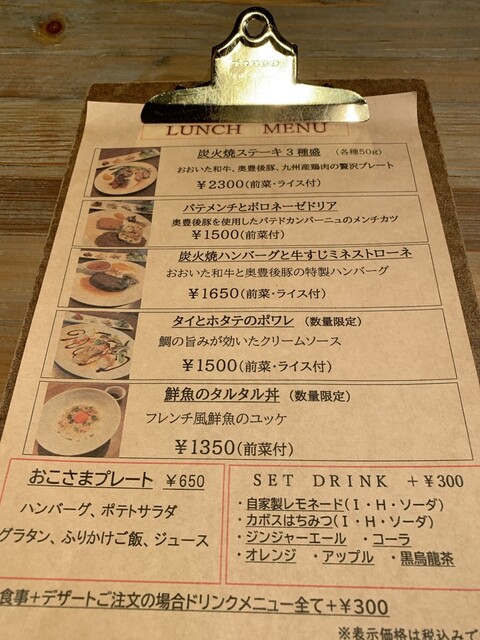 LUNCH MENU
炭火焼ステーキ3種盛 (各種50g)
おおいた和牛、奥豊後豚、九州産鶏肉の贅沢プレート
¥2300(前菜・ライス付)
パテメンチとボロネーゼドリア
奥豊後豚を使用したパテドカンパーニュのメンチカツ
¥1500(前菜付)
炭火焼ハンバーグと牛すじミネストローネ
おおいた和牛と奥豊後豚の特製ハンバーグ
¥1650(前菜・ライス付)
タイとホタテのポワレ (数量限定)
鯛の旨みが効いたクリームソース
¥1500(前菜・ライス付)
鮮魚のタルタル丼 (数量限定)
フレンチ風鮮魚のユッケ
¥1350(前菜付)
おこさまプレート ¥650
ハンバーグ、ポテトサラダ
グラタン、ふりかけご飯、ジュース
SET DRINK +¥300
・自家製レモネード(I・H・ソーダ)
・カボスはちみつ(I・H・ソーダ)
・ジンジャーエール ・コーラ
・オレンジ ・アップル ・黒烏龍茶
食事+デザートご注文の場合ドリンクメニュー全て+¥300
※表示価格は税込みで